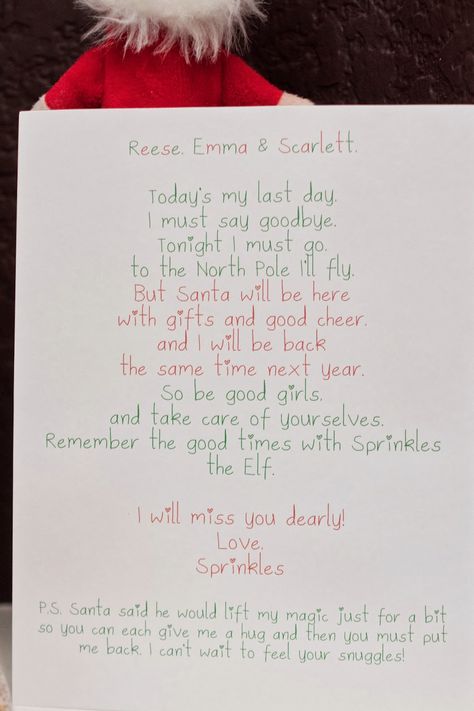 Reese, Emma & Scarlett,
Today's my last day.
I must say goodbye.
Tonight I must go.
to the North Pole I'll fly.
But Santa will be here
with gifts and good cheer.
and I will be back
the same time next year.
So be good girls.
and take care of yourselves.
Remember the good times with Sprinkles
the Elf.
I will miss you dearly!
Love,
Sprinkles
P.S. Santa said he would lift my magic just for a bit
so you can each give me a hug and then you must put
me back. I can't wait to feel your snuggles!